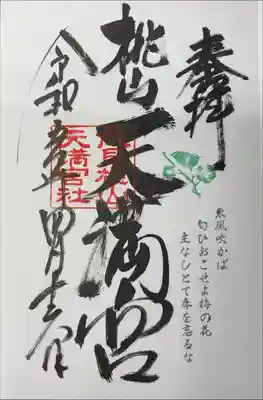 奉拝
東風吹かば
匂ひおこせよ梅の花
主なしとて春を忘るな
桃山天満宮
天満宮社
令和五年四月十二日